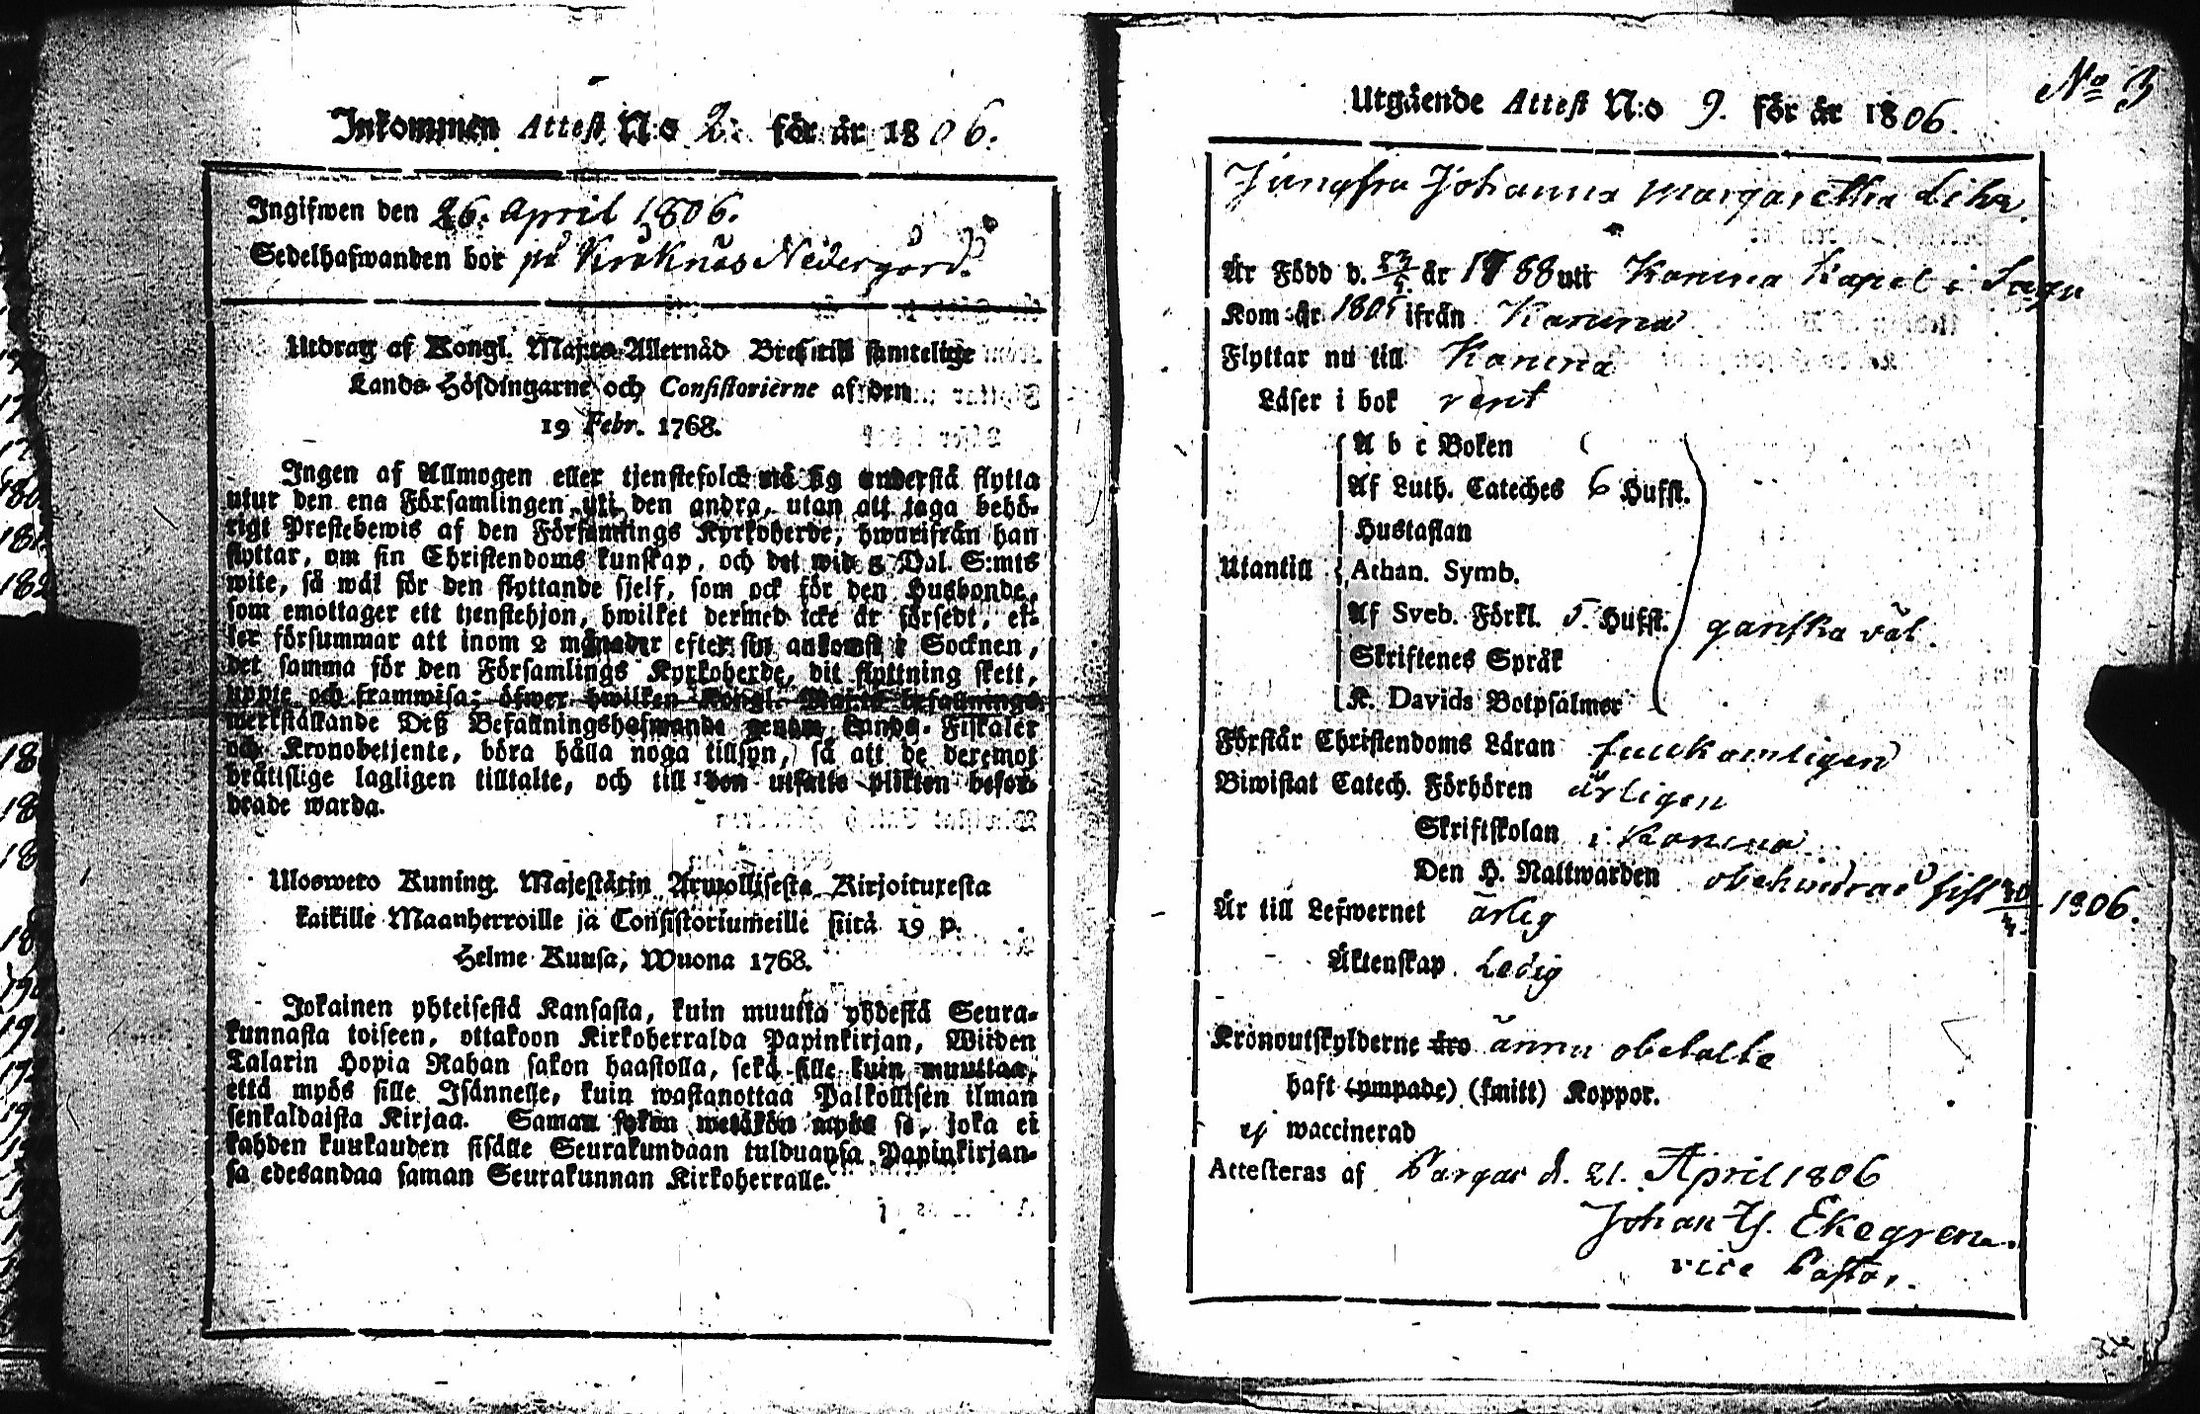 Inkommen Attest N:o 2: för år 1806.
Ingifwen den 26. April 1806.
Sedelhafwanden bor på Kråknäs Nedergård.
Utdrag af Kongl. Maj:ts Allernåd Bref till samtelige
Lands Höfdingarne och Consistorierne af den
19 Febr. 1768.
Ingen af Allmogen eller tjenstefolck må sig understå flytta
utur den ena Församlingen uti den andra, utan att taga behö-
rigt Prestebewis af den Församlings Kyrkoherde, hwarifrån han
flyttar, om sin Christendoms kunskap, och det wid 5 Dal. S:mts
wite, så wäl för den flyttande sjelf, som ock för den Husbonde,
som emottager ett tjenstehjon, hwilket dermed icke är försedt, el-
ler försummar att inom 2 månader efter sin ankomst i Socknen,
det samma för den Församlings Kyrkoherde, dit flyttning skett,
uppte och framwisa; öfwer hwilken Kongl. Maj:ts befallnings
werkställande Deß Befallningshafwande genom Lands-Fiskaler
och Kronobetjente, böra hålla noga tillsyn, så att de deremot
bråttslige lagligen tilltalte, och till den utsatte plikten befor-
drade warda.
Ulosweto Kuning. Majestätin Armollisesta Kirjoituxesta
kaikille Maanherroille ja Consistoriumeille siitä 19 p.
Helme Kuusa, Wuona 1768.
Jokainen yhteisestä Kansasta, kuin muutta yhdestä Seura-
kunnasta toiseen, ottakoon Kirkoherralda Papinkirjan, Wiiden
Talarin Hopia Rahan sakon haastolla, sekä sille kuin muuttaa,
että myös sille Isännelle, kuin wastanottaa Palkollisen ilman
senkaldaista Kirjaa. Saman sakon wetäkön myös se, joka ei
kahden kuukauden sisälle Seurakundaan tulduansa Papinkirjan-
sa edesandaa saman Seurakunnan Kirkoherralle.
No 3
Utgående Attest N:o 9. för år 1806.
Jungfru Johanna Margaretha Lihr.
Är Född d. 23/5. år 1788 uti Karuna Kapel i Sagu
Kom år 1805 ifrån Karuna
Flyttar nu till Karuna
Läser i bok rent
A b c Boken
Af Luth. Cateches 6 Hufst.
Hustaflan
Utantill Athan. Symb.
Af Sveb. Förkl. 5. Hufst. ganska väl.
Skriftenes Språk
K. Davids Botpsalmer
Förstår Christendoms Läran fullkomligen
Biwistat Catech. Förhören årligen
Skriftskolan i Karuna
Den H. Nattwarden obehindrad sist 20/4. 1806.
Är till Lefwernet ärlig
Äktenskap Ledig
Kronoutskylderne äro ännu obetalte
haft (ympade) (smitt) Koppor.
ej waccinerad
Attesteras af Pargas d. 21. April 1806
Johan H. Ekegren.
vice Pastor.